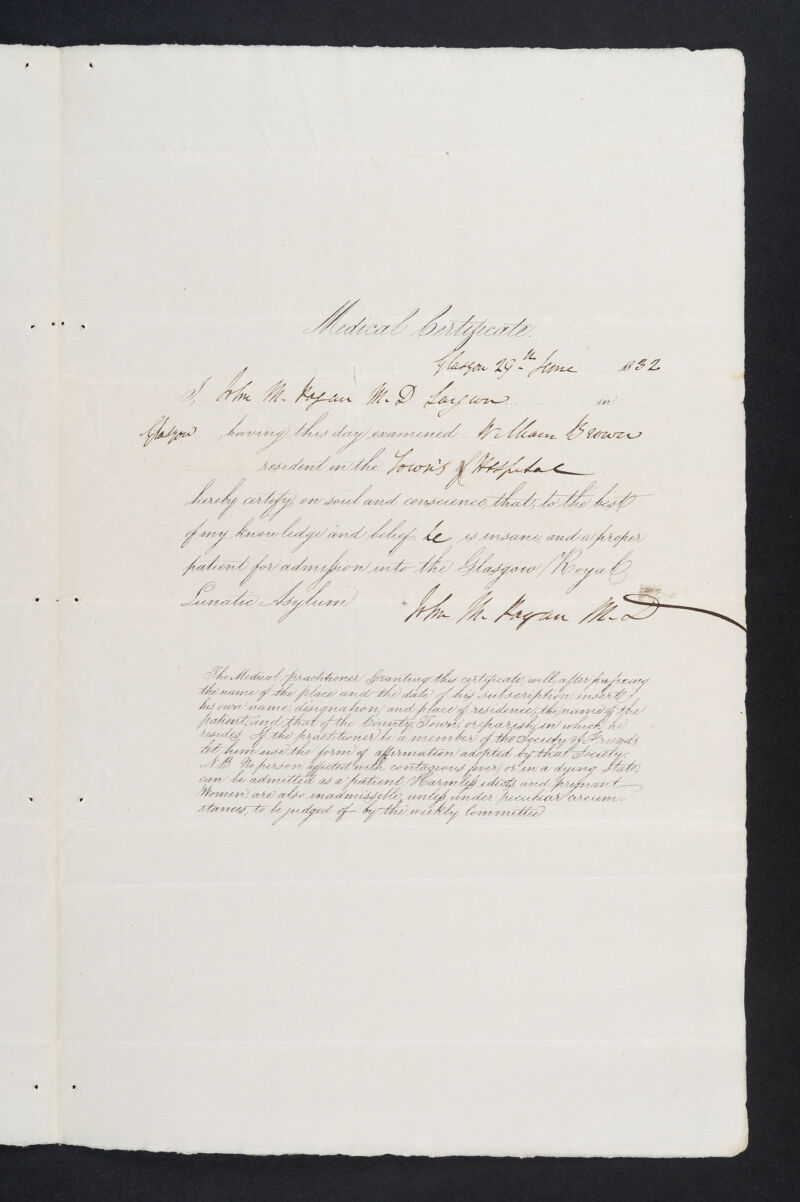 Medical Certificate.
Glasgow 29th June 1832
I, John M. M.D Surgeon in
Glasgow having this day examined William Brown
resident in the Town's Hospital
hereby certify, on soul and conscience, that, to the best
of my knowledge and belief he is insane, and a proper
patient for admission into the Glasgow Royal
Lunatic Asylum
John M. M.D
The Medical practitioner Granting this certificate, will, after prefixing
the name of the place and the date of his subscription insert
his own name, designation, and place of residence, the name of the
patient, and that of the County, Town, or parish, in which he
resides. If the practitioner be a member of the Society of Friends
let him use the form of affirmation adopted by that Society.
N.B. No person affected with contagious fever, or in a dying State,
can be admitted as a patient. Harmless idiots and pregnant
Women are also inadmissible, unless under peculiar circum-
stances, to be judged of by the weekly Committee